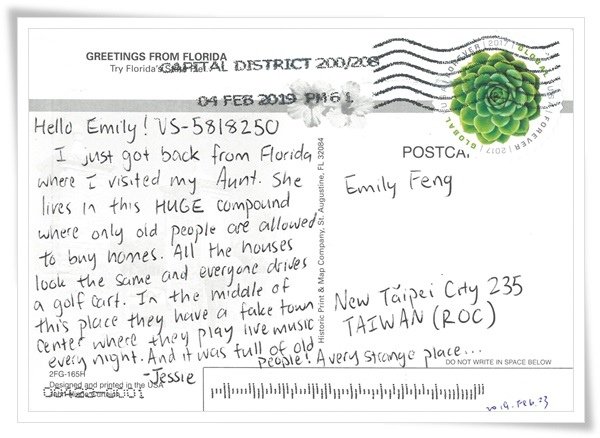 GREETINGS FROM FLORIDA
Try Florida's
CAPITAL DISTRICT 200/208
04 FEB 2019 PM 6 L
GLOBAL
FOREVER | 2017
GLOBAL
FOREVER | 2017
POSTCA
Hello Emily! US-5818250
I just got back from Florida
where I visited my Aunt. She
lives in this HUGE compound
where only old people are allowed
to buy homes. All the houses
look the same and everyone drives
a golf cart. In the middle of
this place they have a fake town
center where they play live music
every night. And it was full of old
people! A very strange place...
-Jessie
Historic Print & Map Company, St. Augustine, FL 32084
Emily Feng
New Taipei City 235
TAIWAN (ROC)
DO NOT WRITE IN SPACE BELOW
2FG-165H
Designed and printed in the USA
2019.FEB.23